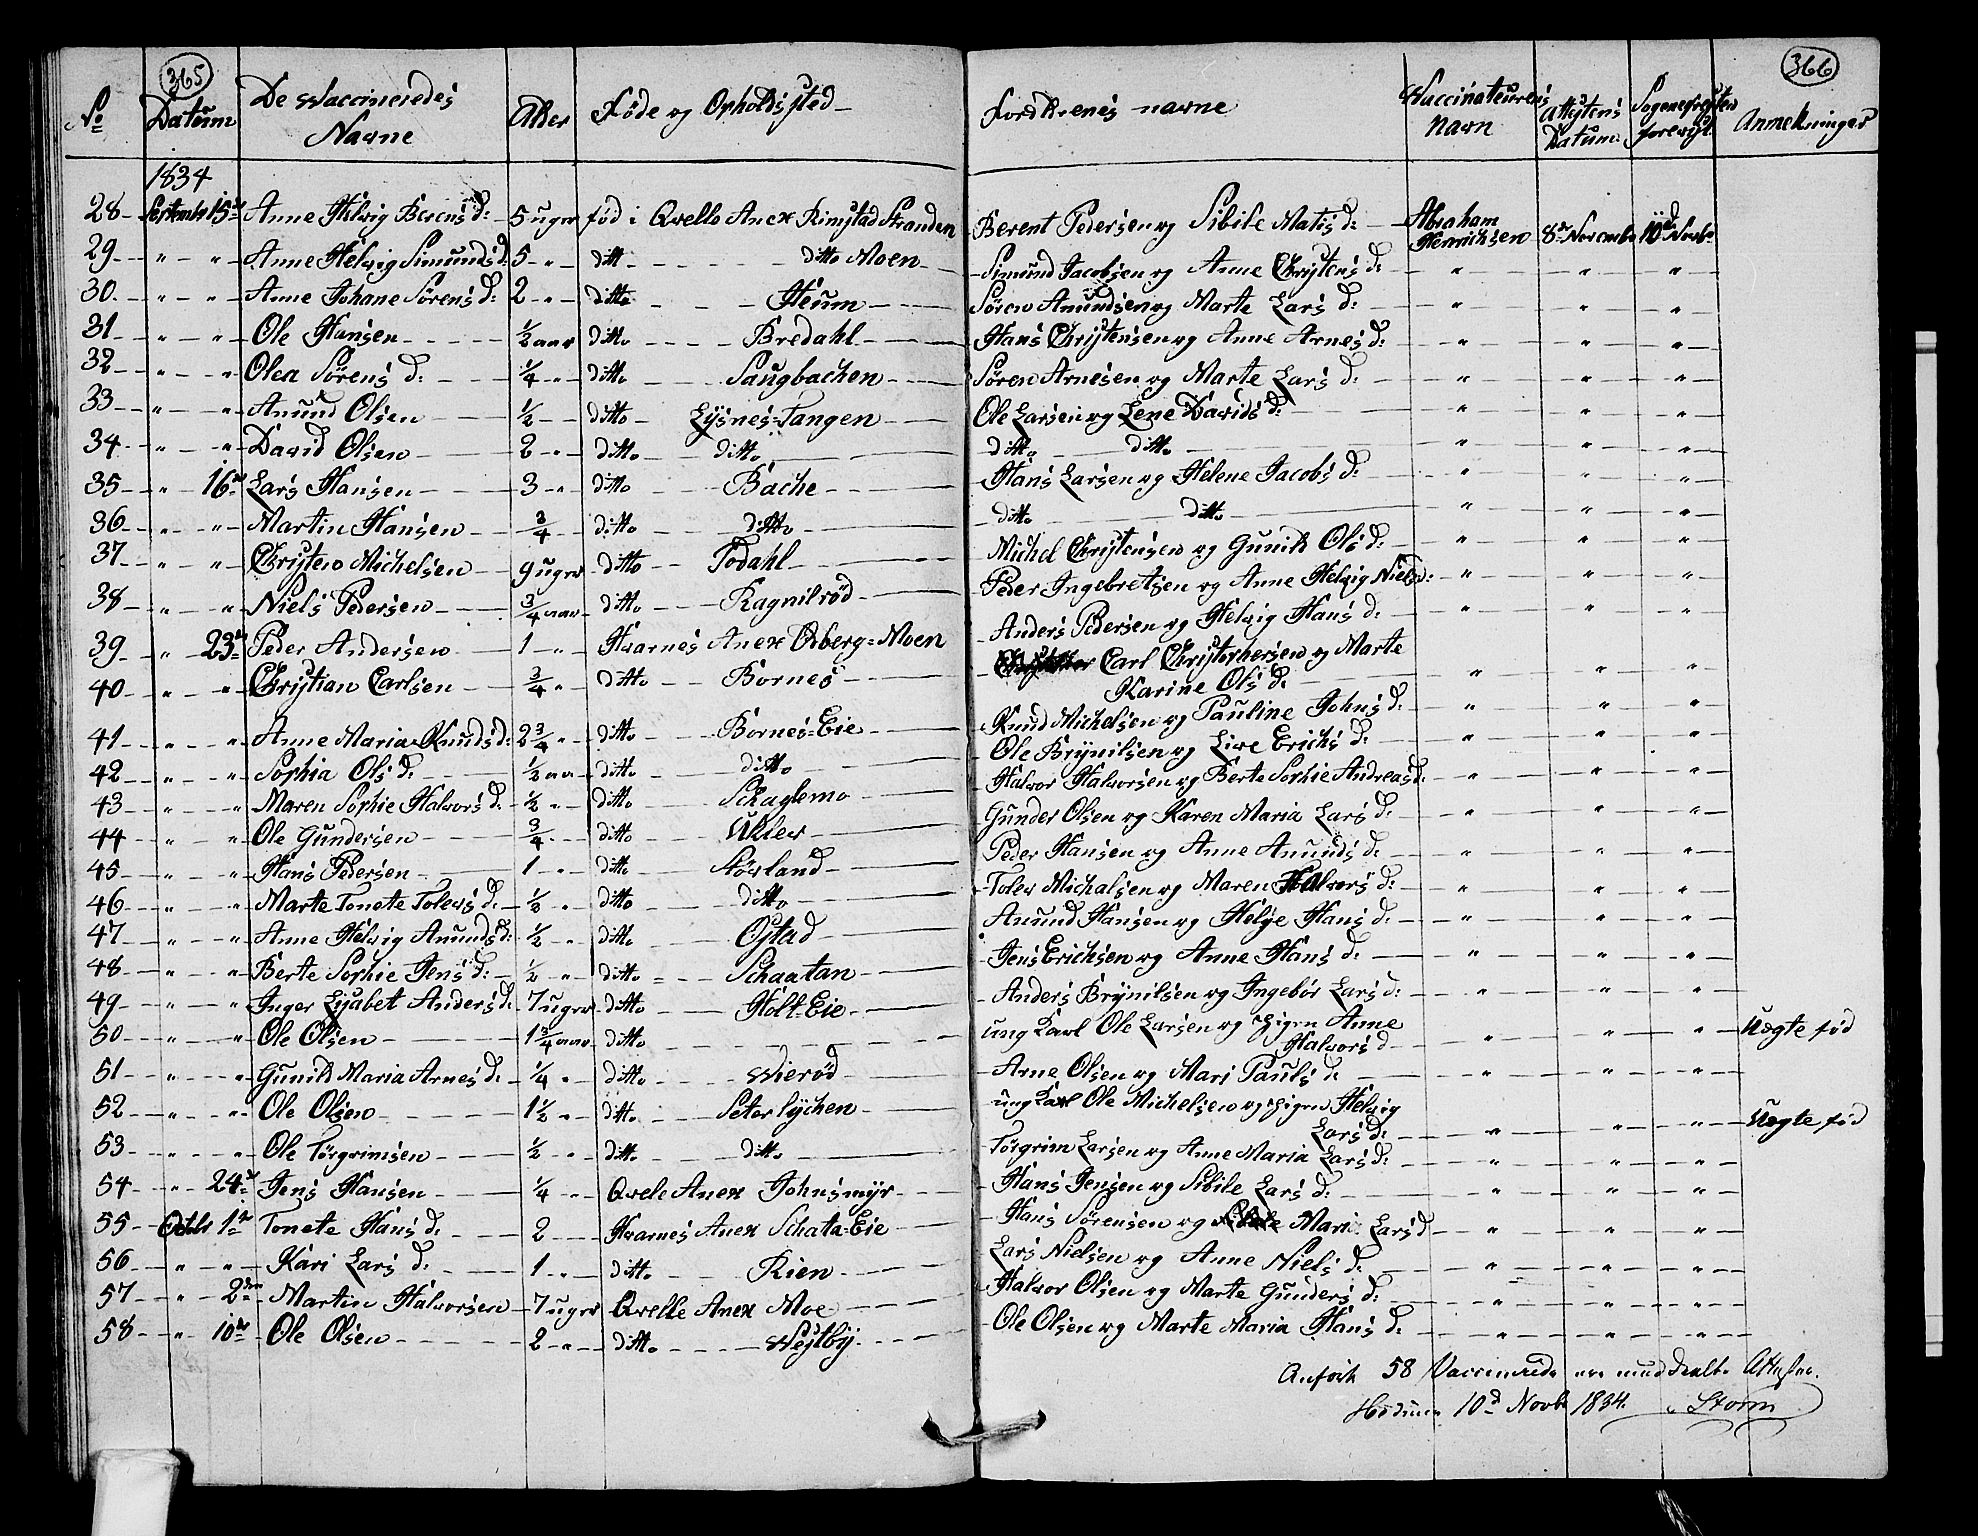 365
No
Datum
De Vaccineredes
Navne
Alder
Føde og Opholdssted
1834
28 September 15de Anne Helvig Berensd: 5 uger fød i Qvelle Anex Rimstad Stranden
29 " " Anne Helvig Simundsd: 5 " ditto ditto Moen
30 " " Anne Johane Sørens d: 2 " ditto Heum
31 " " Ole Hansen ½ aar ditto Bredahl
32 " " Olea Sørens d: ¼ " ditto Saugbachen
33 " " Anund Olsen ½ ditto Lysnes=Tangen
34 " " David Olsen 2 " ditto ditto
35 " 16de Lars Hansen 3 " ditto Bache
36 " " Martin Hansen ¾ ditto ditto
37 " " Christen Michelsen 9 uger ditto Todahl
38 " " Niels Pedersen ¾ aar ditto Ragnilrød
39 " 23de Peder Andersen 1 " Hvarnes Anex Odberg=Moen
40 " " Christian Carlsen ¾ " ditto Bornes
41 " " Anne Maria Knudsd: 2¾ " ditto Bornes=Eie
42 " " Sophia Ols d: ½ aar ditto ditto
43 " " Maren Sophie Halvors d: ½ " ditto Schaglemo
44 " " Ole Gundersen ¾ " ditto Uklev
45 " " Hans Pedersen 1 " ditto Størland
46 " " Marte Tonete Tolevs d: ½ " ditto ditto
47 " " Anne Helvig Anundsd: ½ " ditto Ostad
48 " " Berte Sophie Jens d: ½ " ditto Schaatan
49 " " Inger Lisabet Anders d: 7 uger ditto Holt=Eie
50 " " Ole Olsen 1¾ aar ditto
51 " " Gunild Maria Arnes d: ¼ " ditto Vierød
52 " " Ole Olsen 1½ " ditto Seterlychen
53 " " Ole Torgrimsen ½ " ditto ditto
54 " 24de Jens Hansen ¼ " Qvele Anex Johnsmyr
55 Octbr 1ste Tonete Hans d: 2 Hvarnes Anex Schata=Eie
56 " " Kari Lars d: 1 " ditto Rien
57 " 2den Martin Halvorsen 7 uger Qvelle Anex Moe
58 " 10de Ole Olsen 2 " ditto Vestby
366
Forældrenes navne
Vaccinateurens
Navn
Attestens
Datum
Sognepresten
forevist
Anmerkninger
Berent Pedersen og Sibile Matis d: Abraham
Henrichsen 8de November 10de Novbr
Simund Jacobsen og Anne Christens d: " " "
Søren Amundsen og Marte Lars d: " " "
Hans Christensen og Anne Arnes d: " " "
Søren Arnesen og Marte Lars d: " " "
Ole Larsen og Lene Davids d: " " "
ditto ditto " " "
Hans Larsen og Helene Jacobs d: " " "
ditto ditto " " "
Michel Christensen og Gunild Ols d: " " "
Peder Ingebretsen og Anne Helvig Nielsd: " " "
Anders Pedersen og Helvig Hans d: " " "
Carl Christophersen og Marte
Karine Ols d: " " "
Knud Michelsen og Pauline Johns d: " " "
Ole Brynilsen og Live Erichs d: " " "
Halvor Halvorsen og Berte Sophie Andreasd: " " "
Gunder Olsen og Karen Maria Lars d: " " "
Peder Hansen og Anne Anunds d: " " "
Tolev Michalsen og Maren Halvors d: " " "
Anund Hansen og Helge Hans d: " " "
Jens Erichsen og Anne Hans d: " " "
Anders Brynilsen og Ingebor Lars d: " " "
ung Karl Ole Larsen og pigen Anne
Halvors d " " " Uegte fød
Arne Olsen og Mari Pauls d: " " "
ung Karl Ole Michelsen og pigen Helvig
Lars d: " " " Uegte fød
Torgrim Larsen og Anne Maria Lars d: " " "
Hans Jensen og Sibile Lars d: " " "
Hans Sørensen og Mari Lars d " " "
Lars Nielsen og Anne Niels d: " " "
Halvor Olsen og Marte Gunders d: " " "
Ole Olsen og Marte Maria Hans d: " " "
Anførte 58 Vaccinerede ere meddeelte Attester.
10d Novbr 1834. Storm